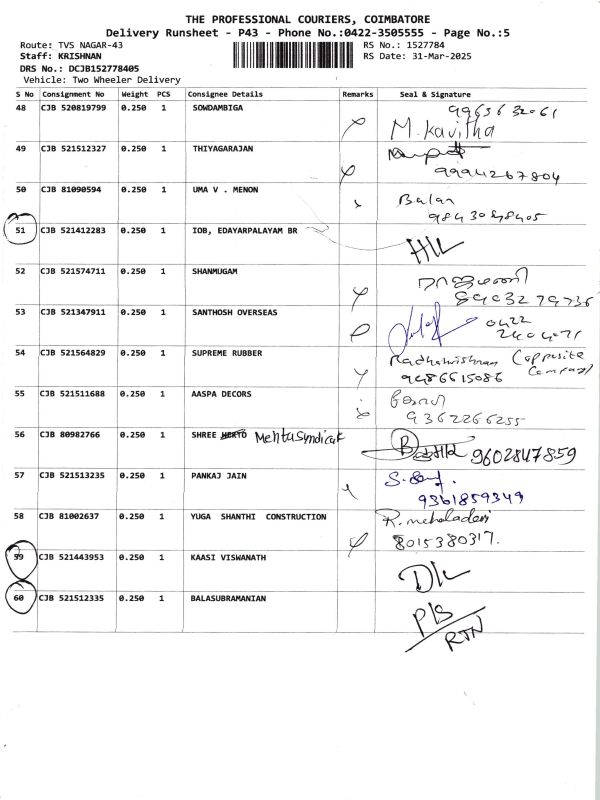 THE PROFESSIONAL COURIERS, COIMBATORE
Delivery Runsheet - P43 - Phone No.:0422-3505555 - Page No.:5
Route: TVS NAGAR-43 RS No.: 1527784
Staff: KRISHNAN RS Date: 31-Mar-2025
DRS No.: DCJB152778405
Vehicle: Two Wheeler Delivery
S No Consignment No Weight PCS Consignee Details Remarks Seal & Signature
48 CJB 520819799 0.250 1 SOWDAMBIGA
M. Kavitha
49 CJB 521512327 0.250 1 THIYAGARAJAN
9994267804
50 CJB 81090594 0.250 1 UMA V . MENON Balan
51 CJB 521412283 0.250 1 IOB, EDAYARPALAYAM BR
52 CJB 521574711 0.250 1 SHANMUGAM ராஜமணி
53 CJB 521347911 0.250 1 SANTHOSH OVERSEAS 0422
54 CJB 521564829 0.250 1 SUPREME RUBBER Radhakrishnan (opposite
9486615086 Company)
55 CJB 521511688 0.250 1 AASPA DECORS
9362266255
56 CJB 80982766 0.250 1 SHREE Mehta Syndicate
9602847859
57 CJB 521513235 0.250 1 PANKAJ JAIN
9361859349
58 CJB 81002637 0.250 1 YUGA SHANTHI CONSTRUCTION R. mehaladevi
8015380317.
59 CJB 521443953 0.250 1 KAASI VISWANATH D/L
60 CJB 521512335 0.250 1 BALASUBRAMANIAN P/S
RTN